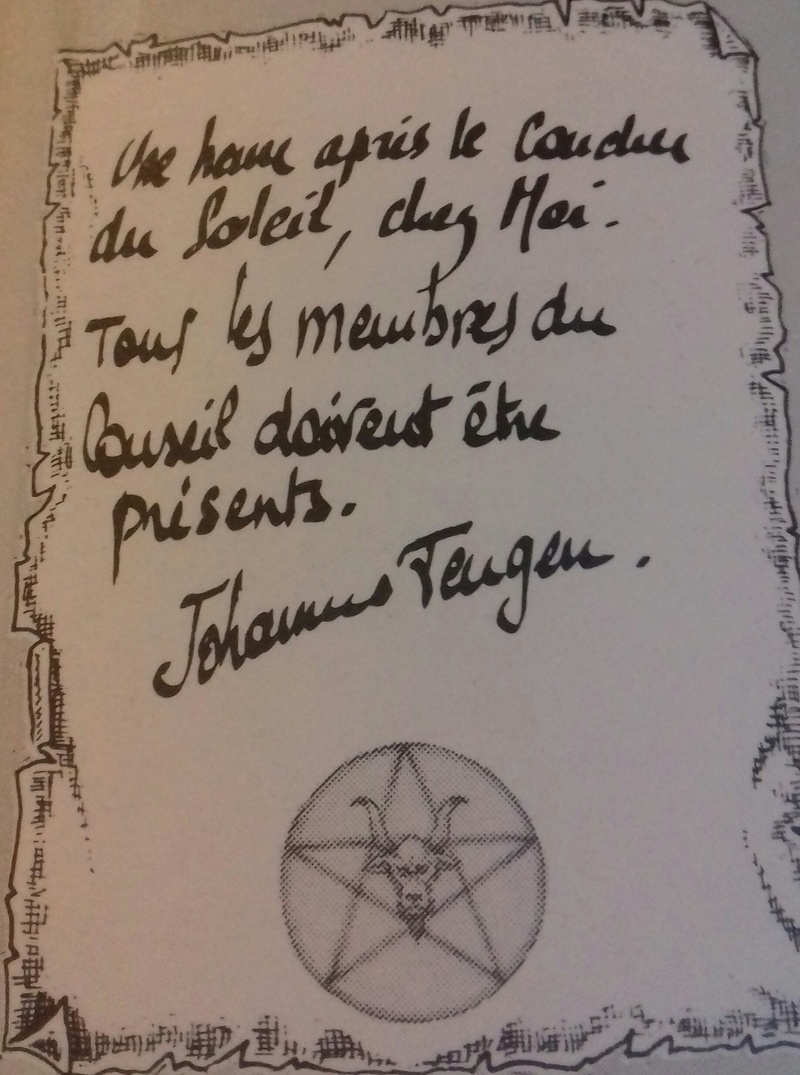 Une heure après le Coucher
du Soleil, chez Moi.
Tous les membres du
Conseil doivent être
présents.
Johannes Teugen.